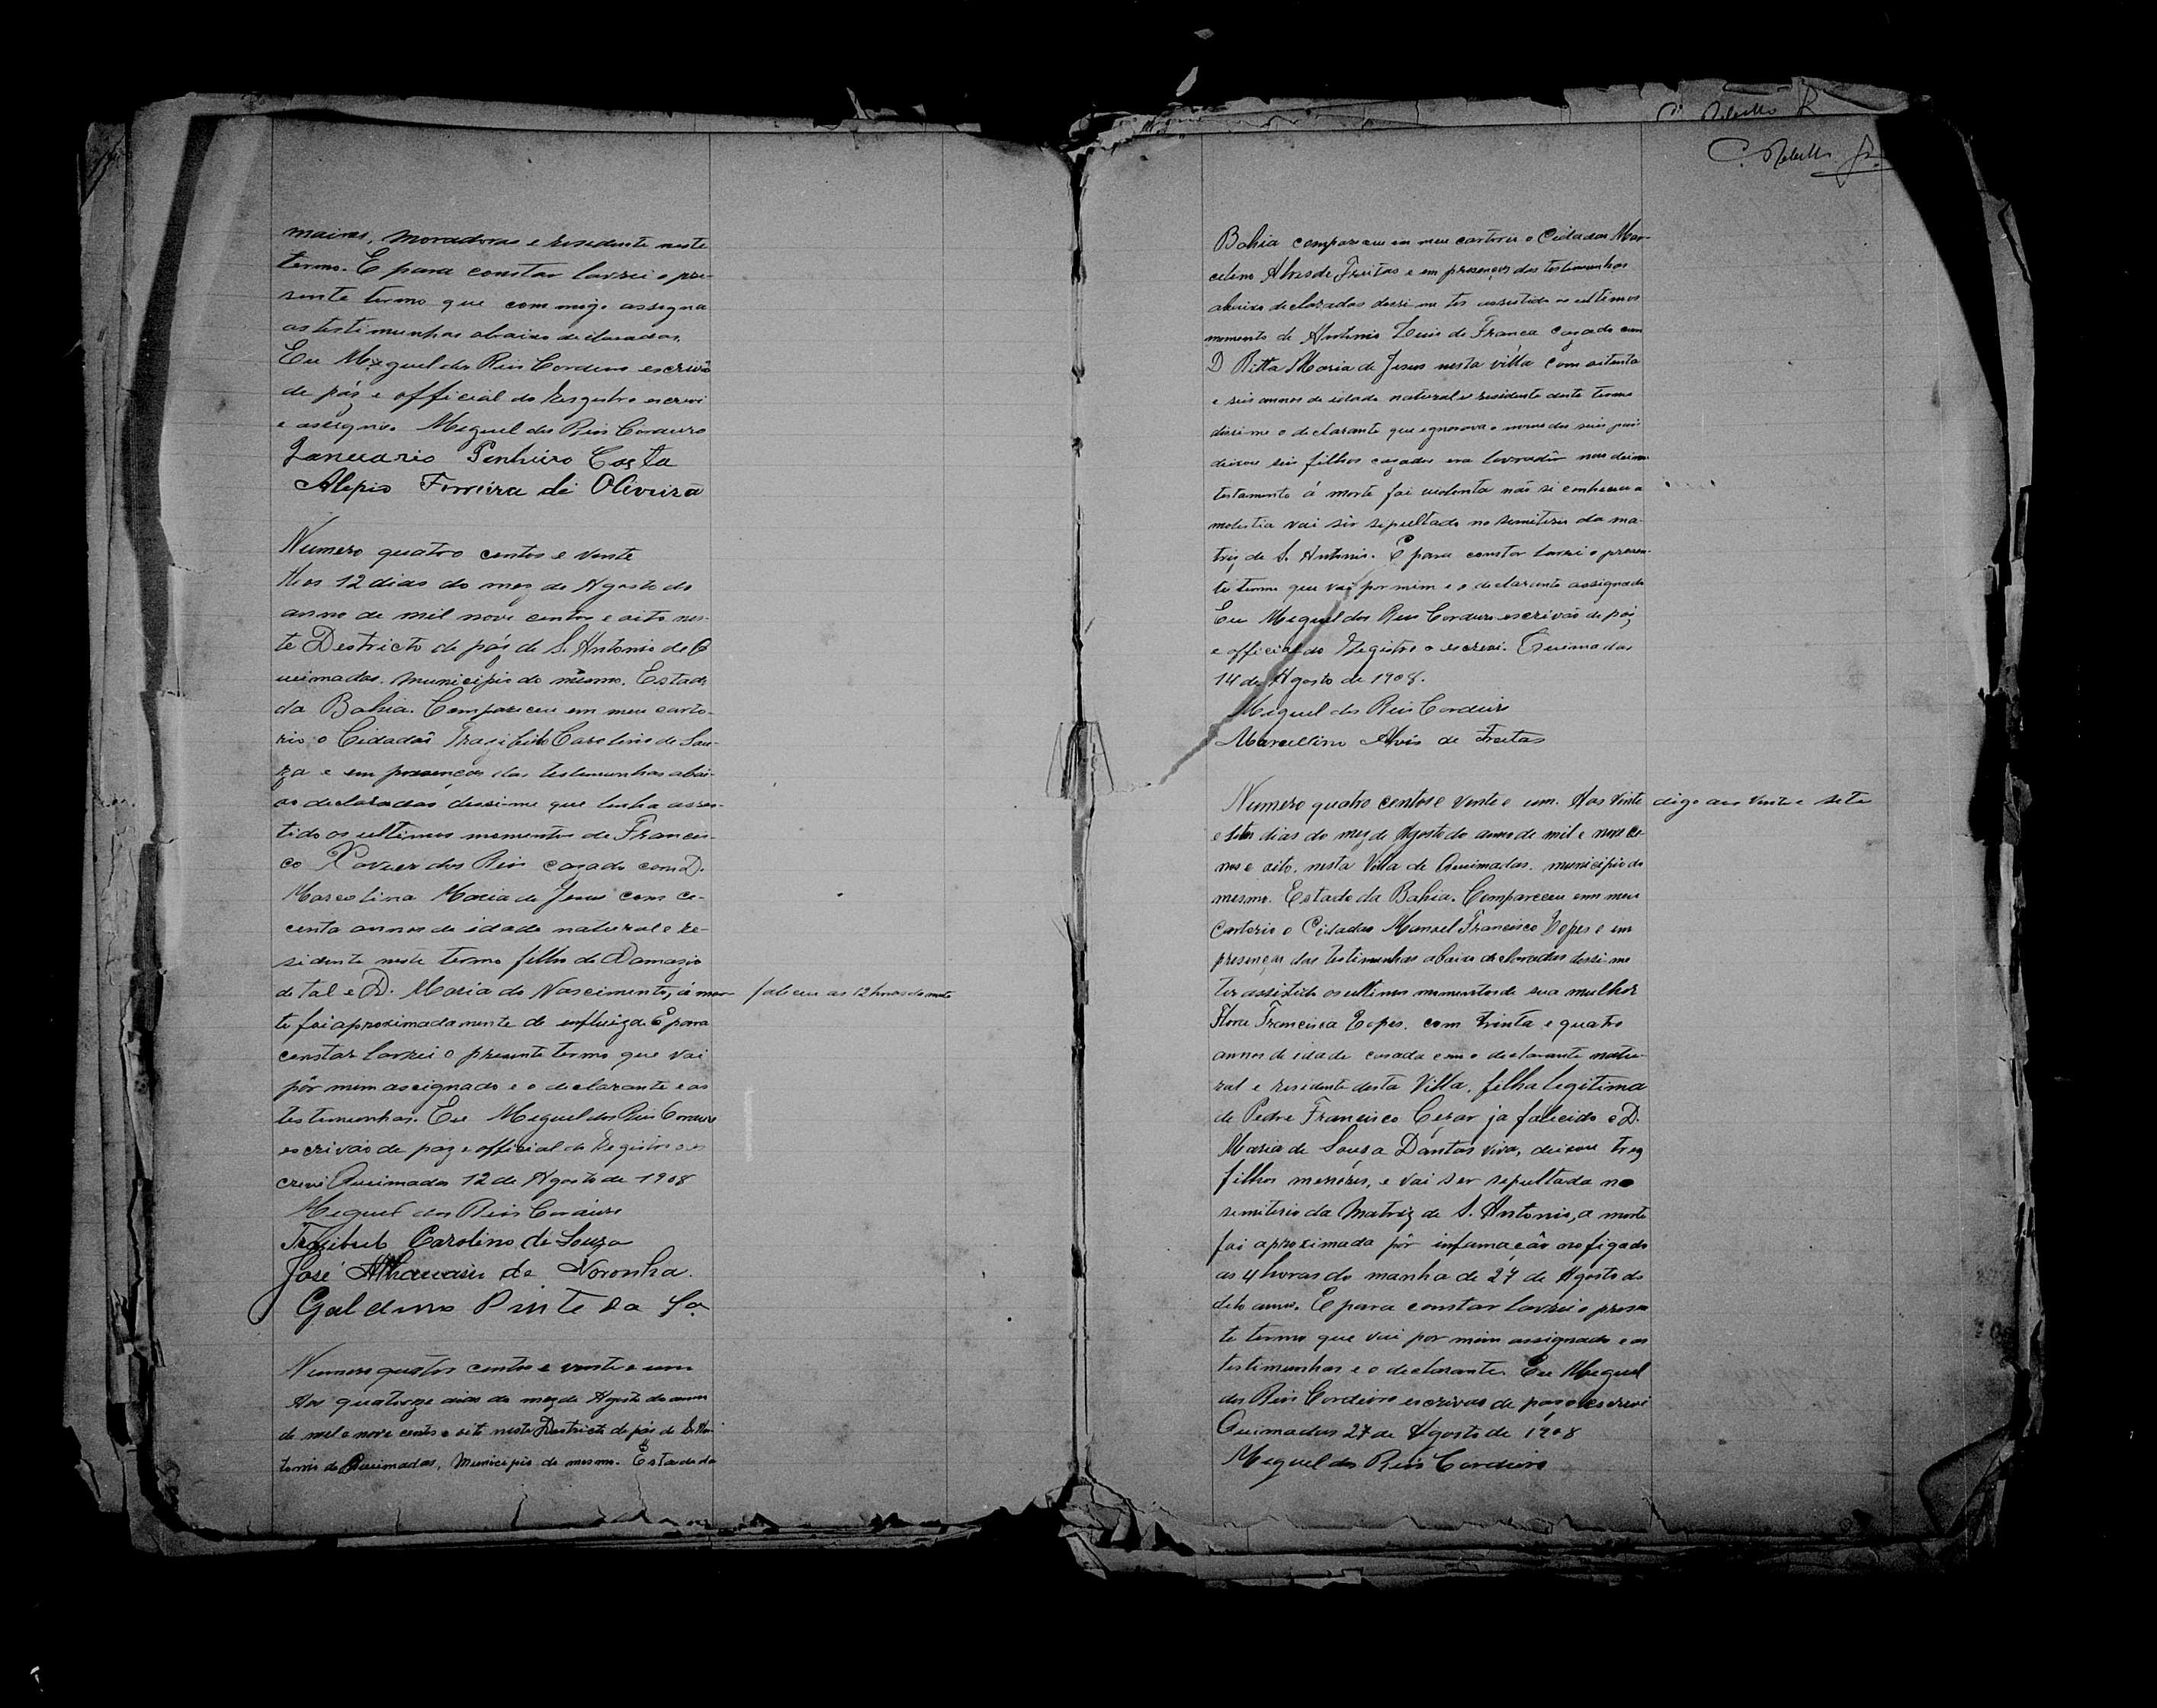 maires, moradoras e residente neste
termo. E para constar lavrei o pre-
sente termo que commigo assigna
as testimunhas abaixo declaradas,
Eu Miguel dos Reis Cordeiro escrivão
de páz e official do Registro escrevi
e assigno. Miguel dos Reis Cordeiro
Januario Penheiro Costa
Alepio Ferreira de Oliveira
Numero quatro centos e vente
Aos 12 dias do mez de Agosto do
anno de mil nove centos e oito nes-
te Destricto de páz de S. Antonio de Q
ueimadas. Municipio do mesmo. Estado
da Bahia. Compareceu em meu carto-
rio o Cidadaõ Carolino de Sou-
za e em presenças das testemunhas abai-
xo declaradas dissi-me que tenha asses-
tido os ultimos momentos de Francis-
co Xavier dos Reis cazado com D.
Marcolina Maria de Jesus com ce-
centa annos de idade natural e re-
sidente neste termo filho de Damazio
de tal e D. Maria do Nascimento, á mor- faleceu as 12 horas da noite
te foi aproximadamente de E para
constar lavrei o presente termo que vai
pôr mim assignado e o declarante e as
testemunhas. Eu Miguel dos Reis Cordeiro
escrivão de paz e official do Registro o es
crevi Queimadas 12 de Agosto de 1908
Miguel dos Reis Cordeiro
Carolino de Souza
José Athanasio de Noronha.
Galdino Pinte da Sa
Numero quatro centos e vente e um
Aos quatorze dias do mez de Agosto do anno
de mil e nove centos e oito neste Destricto de páz de S. An-
tonio de Queimadas, Municipio do mesmo. Estado da
C. Rebello Jr.
Bahia compareceu em meu cartorio o Cidadao Mar-
celino Alves de Freitas e em presenças das testemunhas
abaixo declaradas dissi-me ter assistido os ultimos
momento de Antonio Luis de Franca cazado com
D Ritta Maria de Jesus nesta villa com oitenta
e seis annos de idade natural e residente deste termo
dissi-me o declarante que ignorava o nome dos seus pais
deixou seis filhos cazados era lavradôr nao deixou
testamento á morte foi violenta não si conheceu a
molestia vai sêr sepultado no semiterio da ma-
triz de S. Antonio. E para constar lavrei o presen-
te termo que vai por mim e o declarante assignado
Eu Miguel dos Reis Cordeiro escrivão de páz
e official do Registro o escrevi. Queimadas
14 de Agosto de 1908.
Miguel dos Reis Cordeiro
Marcellino Alvis de Freitas
Numero quatro centos e vente e um. Aos vinte digo aos vinte e sete
e sete dias do mez de Agosto do anno de mil e nove ce-
nos e oito. nesta Villa de Queimadas. municipio do
mesmo. Estado da Bahia. Compareceu em meu
Cartorio o Cidadao Manoel Francisco Lopes e em
presenças das testimunhas abaixo declaradas dessi-me
ter assistido os ultimos momentos de sua mulher
Francisca Lopes. com trinta e quatro
annos de idade casada com o declarante natu-
ral e residente desta Villa. felha legitima
de Pedro Francisco Cezar ja falecido e D.
Maria de Sousa Dantas viva, deixou trez
filhos menóres, e vai ser sepultada no
semiterio da Matriz de S. Antonio, a morte
foi aproximada pôr infamação no figado
as 4 horas do manha de 27 de Agosto do
dito anno. E para constar lavrei o presen
te termo que vai por mim assignado e as
testimunhas e o declarante Eu Miguel
dos Reis Cordeiro escrivao de páz o escrevi
Queimadas 27 de Agosto de 1908
Miguel dos Reis Cordeiro